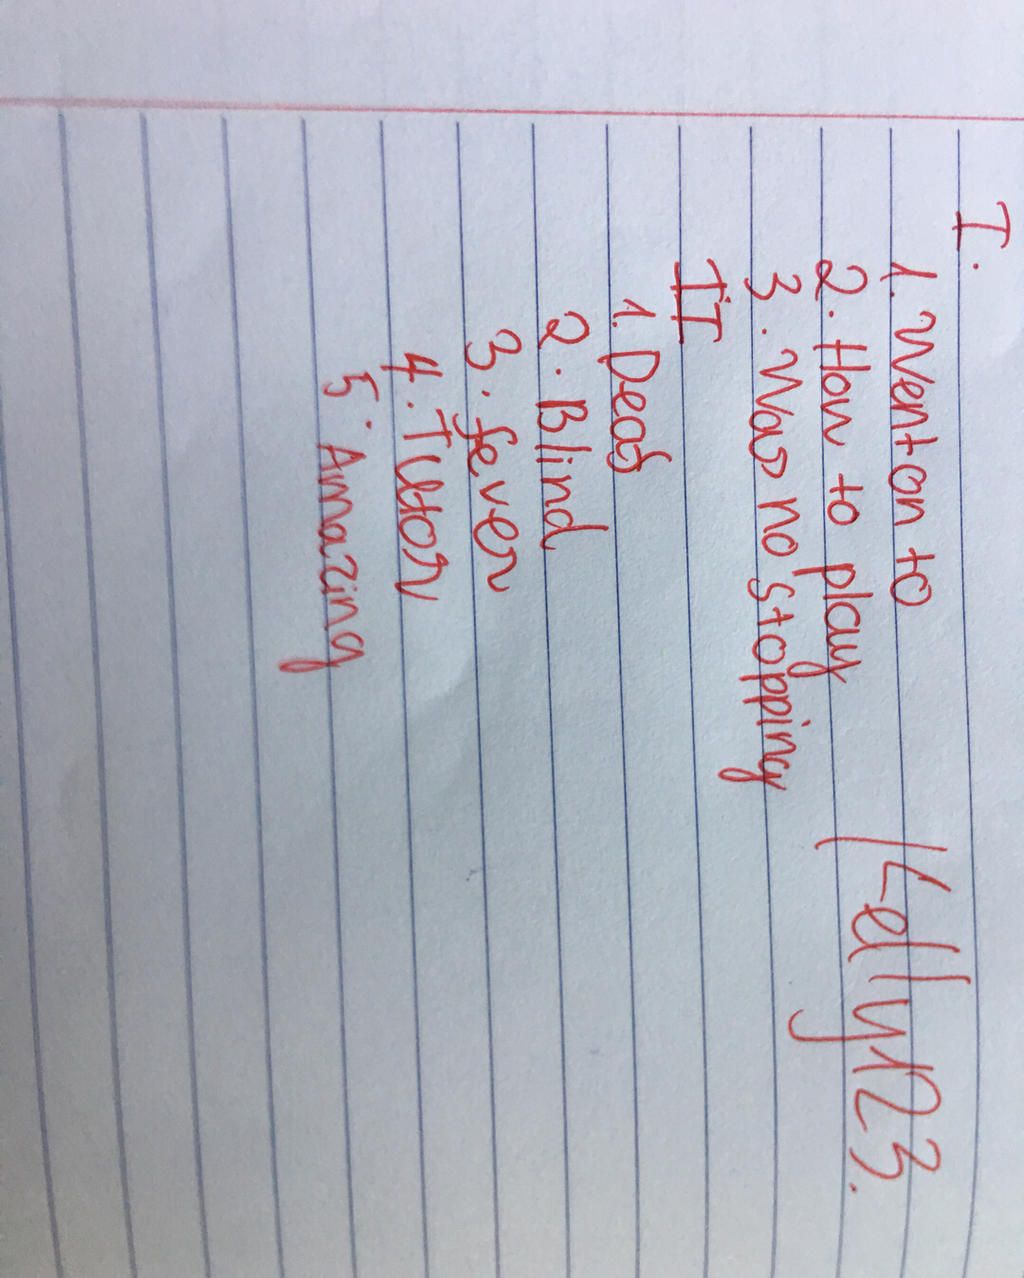 I.
1. Went on to
2. How to play
3. Was no stopping
Kelly123.
II
1. Deaf
2. Blind
3. fever
4. Tutor
5. Amazing